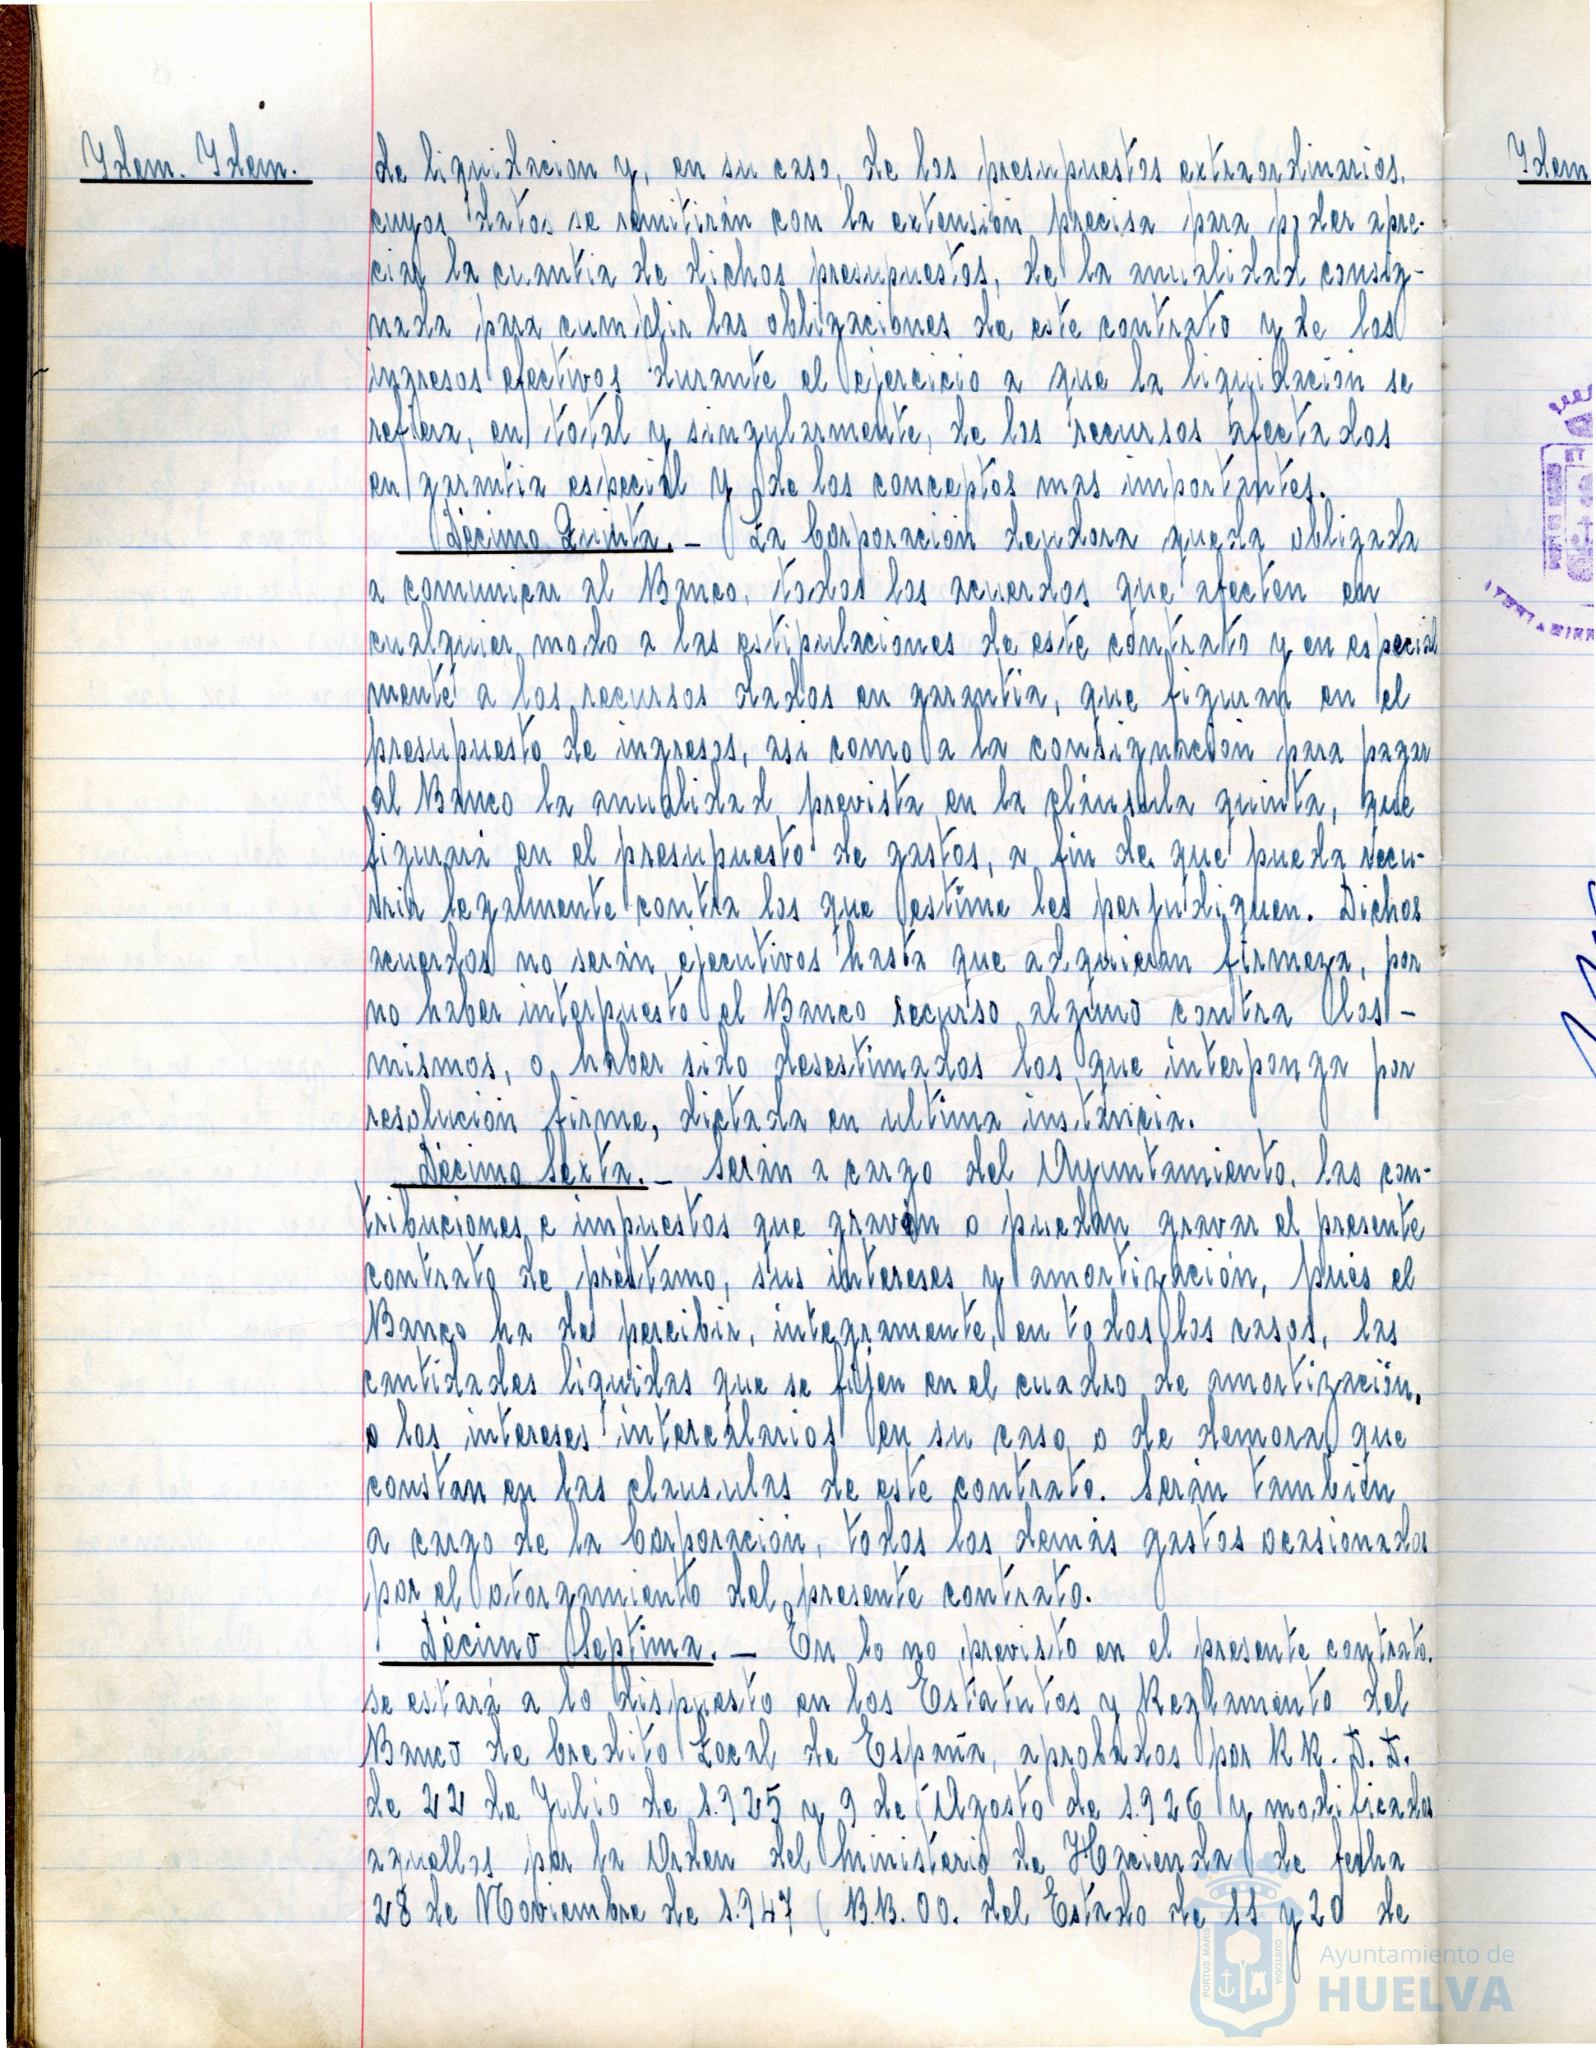 Ydem. Ydem.
de liquidacion y, en su caso, de los presupuestos extraordinarios,
cuyos datos se remitirán con la extensión precisa para poder apre-
ciar la cuantia de dichos presupuestos, de la anualidad consig-
nada para cumplir las obligaciones de este contrato y de los
ingresos efectivos durante el ejercicio a que la liquidación se
refiera, en total y singularmente, de los recursos afectados
en garantia especial y de los conceptos mas importantes.
Décimo Quinta. - La Corporación deudora queda obligada
a comunicar al Banco, todos los acuerdos que afecten en
cualquier modo a las estipulaciones de este contrato y en especial
mente a los recursos dados en garantia, que figuran en el
presupuesto de ingresos, asi como a la consignación para pagar
al Banco la anualidad prevista en la cláusula quinta, que
figurará en el presupuesto de gastos, a fin de que pueda recu-
rrir legalmente contra los que estime les perjudiquen. Dichos
acuerdos no serán ejecutivos hasta que adquieran firmeza, por
no haber interpuesto el Banco recurso alguno contra los -
mismos, o haber sido desestimados los que interponga por
resolución firme, dictada en ultima instancia.
Décimo Sexta. - Serán a cargo del Ayuntamiento, las con-
tribuciones e impuestos que graven o puedan gravar el presente
contrato de préstamo, sus intereses y amortización, pués el
Banco ha de percibir, integramente, en todos los casos, las
cantidades liquidas que se fijen en el cuadro de amortización,
o los intereses intercalarios en su caso o de demora que
constan en las clausulas de este contrato. Serán también
a cargo de la Corporación, todos los demás gastos ocasionados
por el otorgamiento del presente contrato.
Décimo Septima. - En lo no previsto en el presente contrato.
se estará a lo dispuesto en los Estatutos y Reglamento del
Banco de Credito Local de España, aprobados por RR. D.D.
de 22 de Julio de 1.925 y 9 de Agosto de 1.926 y modificados
aquellos por la Orden del Ministerio de Hacienda de fecha
28 de Noviembre de 1.947 (B.B. OO. del Estado de 11 y 20 de
Ydem
PORTUS MARIS
CUSTODIA
Ayuntamiento de
HUELVA